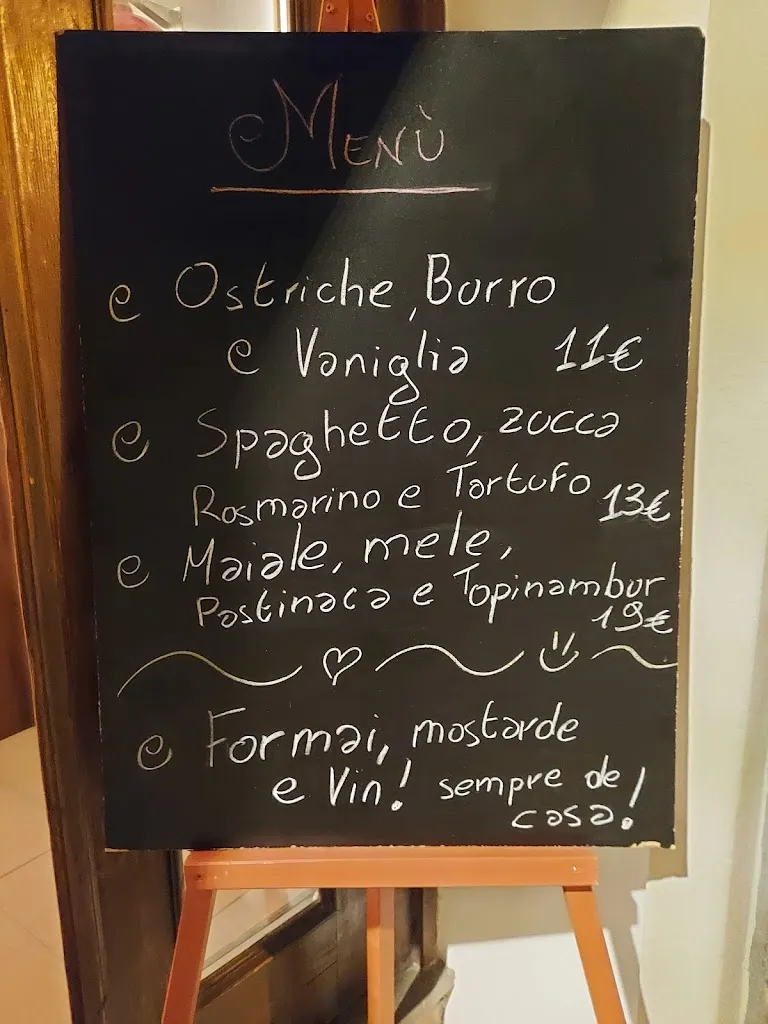 Menù
e Ostriche, Burro
e Vaniglia 11€
e Spaghetto, zucca
Rosmarino e Tartufo 13€
e Maiale, mele,
Pastinaca e Topinambur
19€
e Formai, mostarde
e Vin! sempre de
casa!